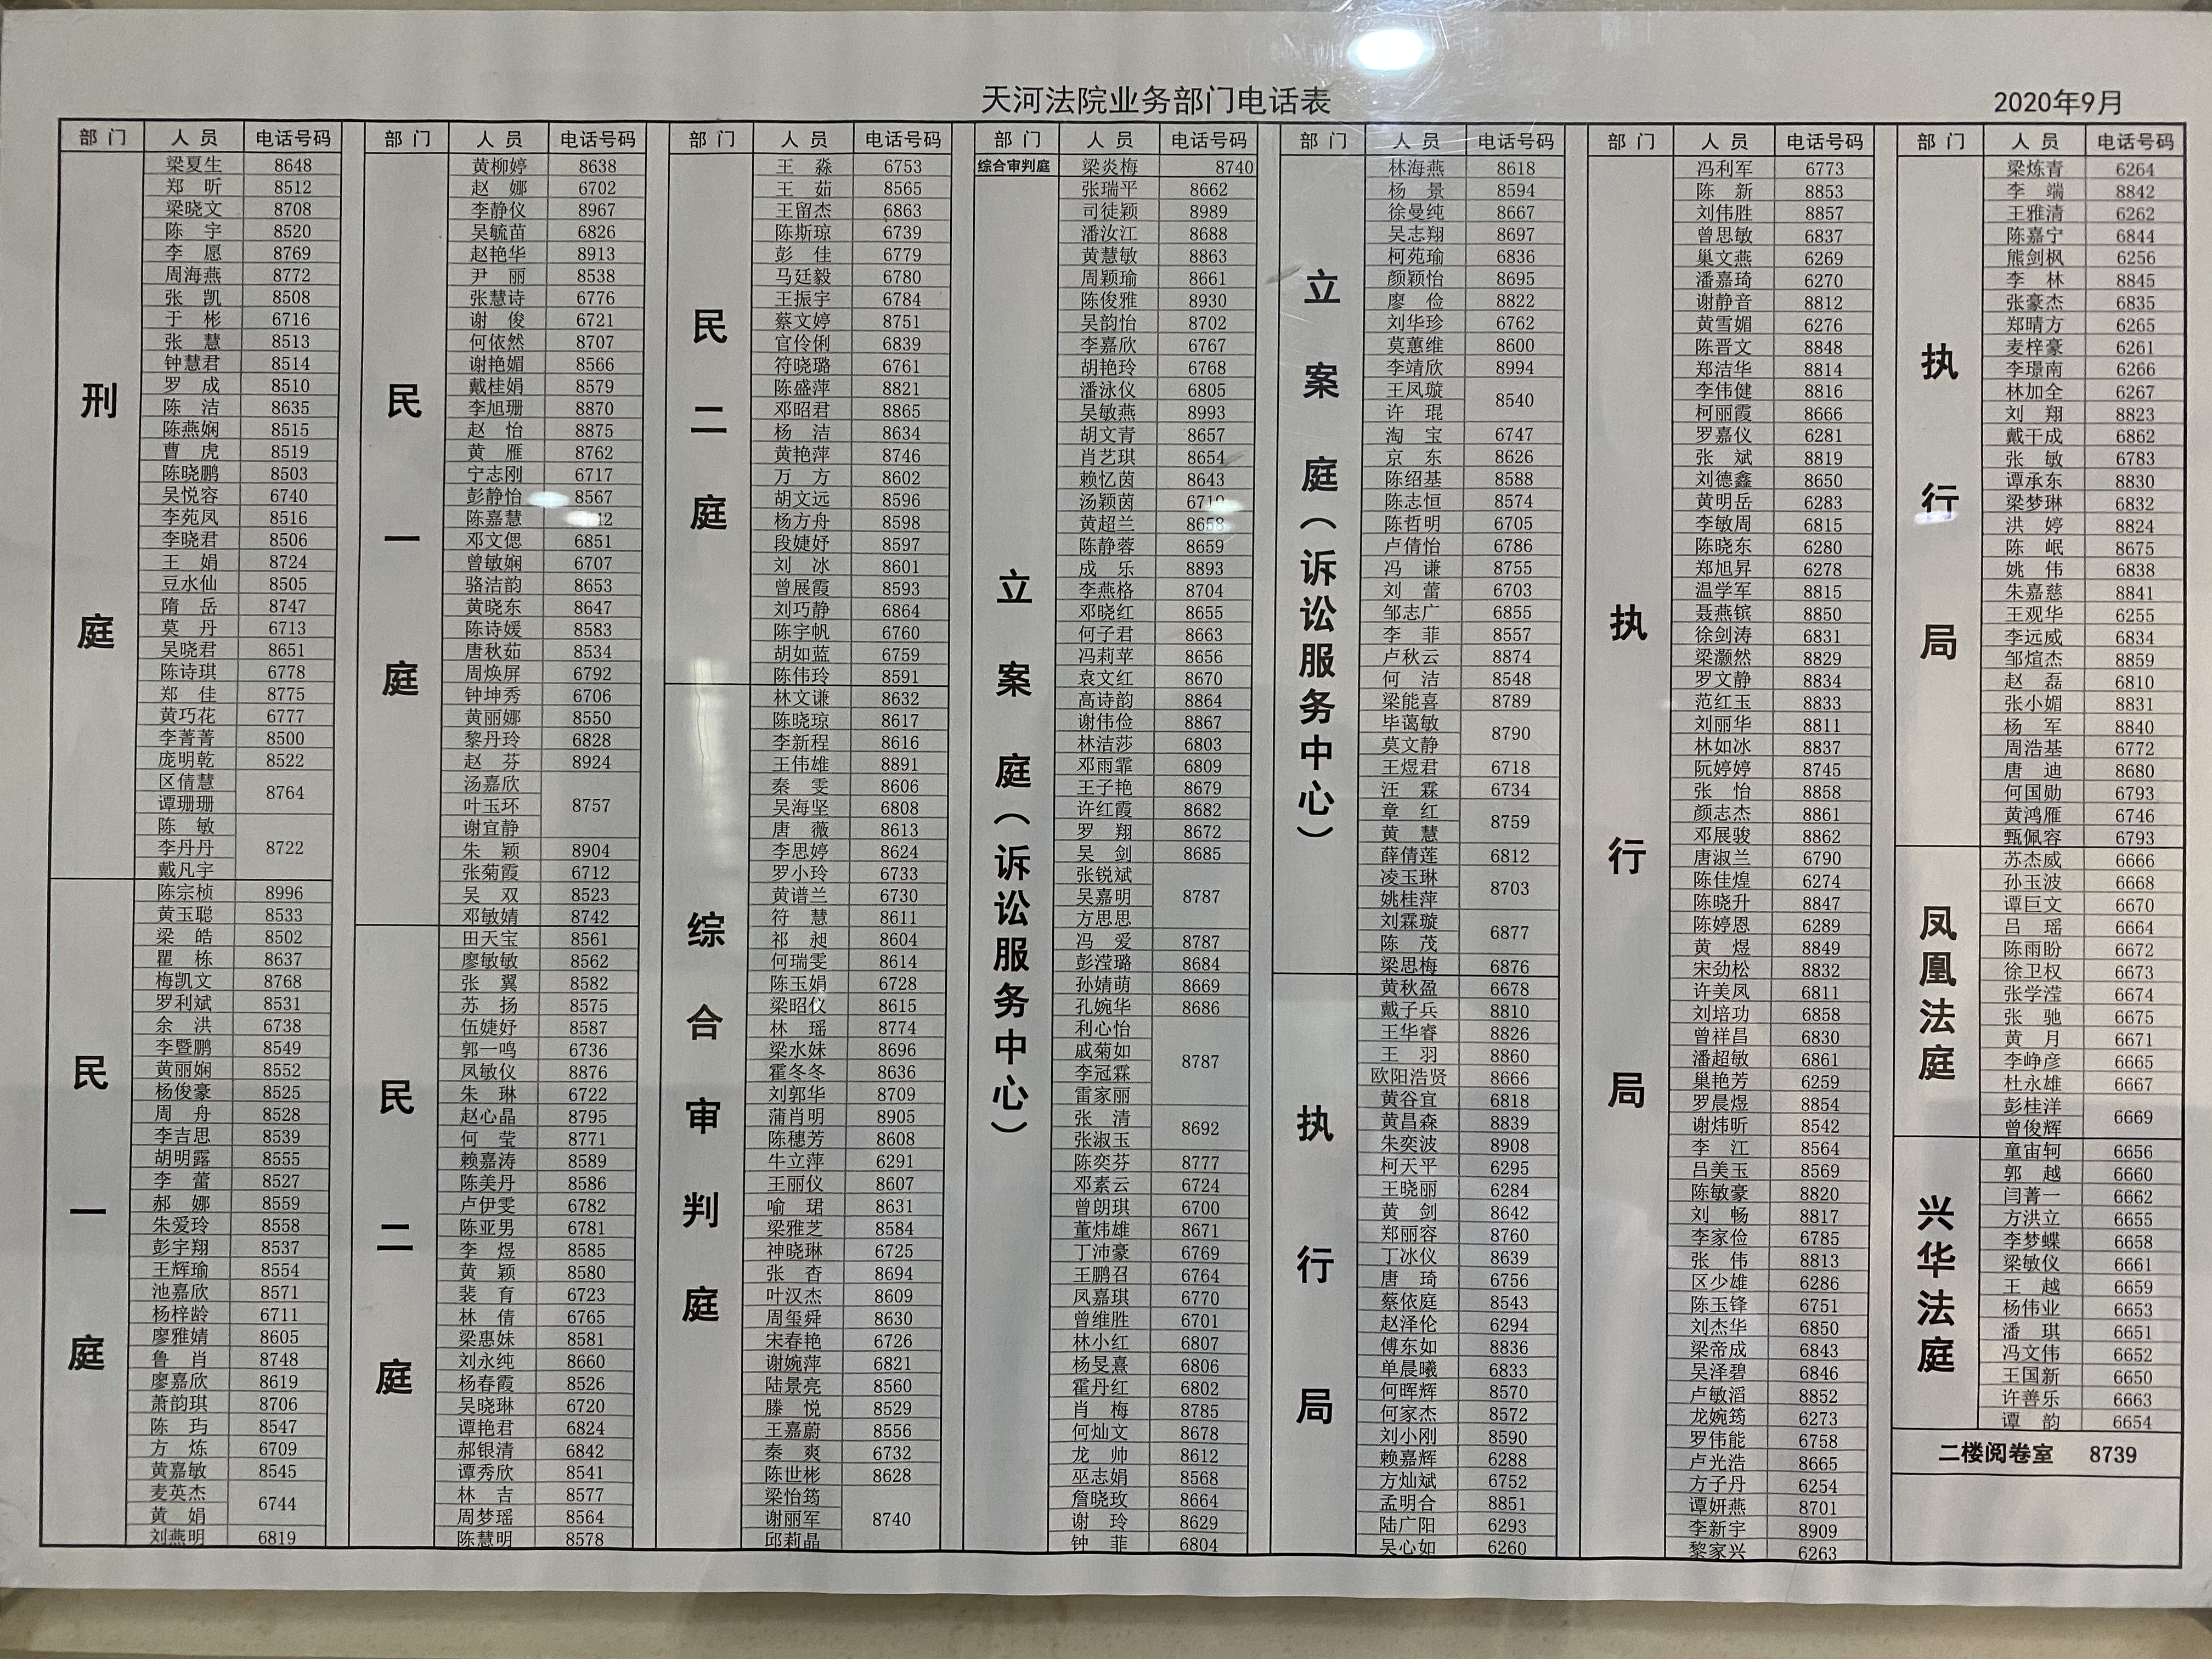 天河法院业务部门电话表
2020年9月
部 门 人 员 电话号码
刑庭
梁夏生 8648
郑 昕 8512
梁晓文 8708
陈 宇 8520
李 愿 8769
周海燕 8772
张 凯 8508
于 彬 6716
张 慧 8513
钟慧君 8514
罗 成 8510
陈 洁 8635
陈燕娴 8515
曹 虎 8519
陈晓鹏 8503
吴悦容 6740
李苑凤 8516
李晓君 8506
王 娟 8724
豆水仙 8505
隋 岳 8747
莫 丹 6713
吴晓君 8651
陈诗琪 6778
郑 佳 8775
黄巧花 6777
李菁菁 8500
庞明乾 8522
区倩慧 8764
谭珊珊
陈 敏 8722
李丹丹
戴凡宇
民一庭
陈宗桢 8996
黄玉聪 8533
梁 皓 8502
瞿 栋 8637
梅凯文 8768
罗利斌 8531
余 洪 6738
李暨鹏 8549
黄丽娴 8552
杨俊豪 8525
周 舟 8528
李吉思 8539
胡明露 8555
李 蕾 8527
郝 娜 8559
朱爱玲 8558
彭宇翔 8537
王辉瑜 8554
池嘉欣 8571
杨梓龄 6711
廖雅婧 8605
鲁 肖 8748
廖嘉欣 8619
萧韵琪 8706
陈 玙 8547
方 炼 6709
黄嘉敏 8545
麦英杰 6744
黄 娟
刘燕明 6819
部 门 人 员 电话号码
民一庭
黄柳婷 8638
赵 娜 6702
李静仪 8967
吴毓苗 6826
赵艳华 8913
尹 丽 8538
张慧诗 6776
谢 俊 6721
何依然 8707
谢艳媚 8566
戴桂娟 8579
李旭珊 8870
赵 怡 8875
黄 雁 8762
宁志刚 6717
彭静怡 8567
陈嘉慧
邓文偲 6851
曾敏娴 6707
骆洁韵 8653
黄晓东 8647
陈诗媛 8583
唐秋茹 8534
周焕屏 6792
钟坤秀 6706
黄丽娜 8550
黎丹玲 6828
赵 芬 8924
汤嘉欣 8757
叶玉环
谢宜静
朱 颖 8904
张菊霞 6712
吴 双 8523
邓敏婧 8742
民二庭
田天宝 8561
廖敏敏 8562
张 翼 8582
苏 扬 8575
伍婕妤 8587
郭一鸣 6736
凤敏仪 8876
朱 琳 6722
赵心晶 8795
何 莹 8771
赖嘉涛 8589
陈美丹 8586
卢伊雯 6782
陈亚男 6781
李 煜 8585
黄 颖 8580
裴 育 6723
林 倩 6765
梁惠妹 8581
刘永纯 8660
杨春霞 8526
吴晓琳 6720
谭艳君 6824
郝银清 6842
谭秀欣 8541
林 吉 8577
周梦瑶 8564
陈慧明 8578
部 门 人 员 电话号码
民二庭
王 淼 6753
王 茹 8565
王留杰 6863
陈斯琼 6739
彭 佳 6779
马廷毅 6780
王振宇 6784
蔡文婷 8751
官伶俐 6839
符晓璐 6761
陈盛萍 8821
邓昭君 8865
杨 洁 8634
黄艳萍 8746
万 方 8602
胡文远 8596
杨方舟 8598
段婕妤 8597
刘 冰 8601
曾展霞 8593
刘巧静 6864
陈宇帆 6760
胡如蓝 6759
陈伟玲 8591
综合审判庭
林文谦 8632
陈晓琼 8617
李新程 8616
王伟雄 8891
秦 雯 8606
吴海坚 6808
唐 薇 8613
李思婷 8624
罗小玲 6733
黄谱兰 6730
符 慧 8611
祁 昶 8604
何瑞雯 8614
陈玉娟 6728
梁昭仪 8615
林 瑶 8774
梁水妹 8696
霍冬冬 8636
刘郭华 8709
蒲肖明 8905
陈穗芳 8608
牛立萍 6291
王丽仪 8607
喻 珺 8631
梁雅芝 8584
神晓琳 6725
张 杏 8694
叶汉杰 8609
周玺舜 8630
宋春艳 6726
谢婉萍 6821
陆景亮 8560
滕 悦 8529
王嘉蔚 8556
秦 爽 6732
陈世彬 8628
梁怡筠 8740
谢丽军
邱莉晶
部 门 人 员 电话号码
综合审判庭 梁炎梅 8740
立案庭（诉讼服务中心）
张瑞平 8662
司徒颖 8989
潘汝江 8688
黄慧敏 8863
周颖瑜 8661
陈俊雅 8930
吴韵怡 8702
李嘉欣 6767
胡艳玲 6768
潘泳仪 6805
吴敏燕 8993
胡文青 8657
肖艺琪 8654
赖忆茵 8643
汤颖茵
黄超兰 8658
陈静蓉 8659
成 乐 8893
李燕格 8704
邓晓红 8655
何子君 8663
冯莉苹 8656
袁文红 8670
高诗韵 8864
谢伟俭 8867
林洁莎 6803
邓雨霏 6809
王子艳 8679
许红霞 8682
罗 翔 8672
吴 剑 8685
张锐斌 8787
吴嘉明
方思思
冯 爱 8787
彭滢璐 8684
孙婧萌 8669
孔婉华 8686
利心怡 8787
戚菊如
李冠霖
雷家丽
张 清 8692
张淑玉
陈奕芬 8777
邓素云 6724
曾朗琪 6700
董炜雄 8671
丁沛豪 6769
王鹏召 6764
凤嘉琪 6770
曾维胜 6701
林小红 6807
杨旻熹 6806
霍丹红 6802
肖 梅 8785
何灿文 8678
龙 帅 8612
巫志娟 8568
詹晓玫 8664
谢 玲 8629
钟 菲 6804
部 门 人 员 电话号码
立案庭（诉讼服务中心）
林海燕 8618
杨 景 8594
徐曼纯 8667
吴志翔 8697
柯苑瑜 6836
颜颖怡 8695
廖 俭 8822
刘华珍 6762
莫蕙维 8600
李靖欣 8994
王凤璇 8540
许 琨
淘 宝 6747
京 东 8626
陈绍基 8588
陈志恒 8574
陈哲明 6705
卢倩怡 6786
冯 谦 8755
刘 蕾 6703
邹志广 6855
李 菲 8557
卢秋云 8874
何 洁 8548
梁能喜 8789
毕蔼敏 8790
莫文静
王煜君 6718
汪 霖 6734
章 红 8759
黄 慧
薛倩莲 6812
凌玉琳 8703
姚桂萍
刘霖璇 6877
陈 茂
梁思梅 6876
执行局
黄秋盈 6678
戴子兵 8810
王华睿 8826
王 羽 8860
欧阳浩贤 8666
黄谷宜 6818
黄昌森 8839
朱奕波 8908
柯天平 6295
王晓丽 6284
黄 剑 8642
郑丽容 8760
丁冰仪 8639
唐 琦 6756
蔡依庭 8543
赵泽伦 6294
傅东如 8836
单晨曦 6833
何晖辉 8570
何家杰 8572
刘小刚 8590
赖嘉辉 6288
方灿斌 6752
孟明合 8851
陆广阳 6293
吴心如 6260
部 门 人 员 电话号码
执行局
冯利军 6773
陈 新 8853
刘伟胜 8857
曾思敏 6837
巢文燕 6269
潘嘉琦 6270
谢静音 8812
黄雪媚 6276
陈晋文 8848
郑洁华 8814
李伟健 8816
柯丽霞 8666
罗嘉仪 6281
张 斌 8819
刘德鑫 8650
黄明岳 6283
李敏周 6815
陈晓东 6280
郑旭昇 6278
温学军 8815
聂燕镔 8850
徐剑涛 6831
梁灏然 8829
罗文静 8834
范红玉 8833
刘丽华 8811
林如冰 8837
阮婷婷 8745
张 怡 8858
颜志杰 8861
邓展骏 8862
唐淑兰 6790
陈佳煌 6274
陈晓升 8847
陈婷恩 6289
黄 煜 8849
宋劲松 8832
许美凤 6811
刘培功 6858
曾祥昌 6830
潘超敏 6861
巢艳芳 6259
罗晨煜 8854
谢炜昕 8542
李 江 8564
吕美玉 8569
陈敏豪 8820
刘 畅 8817
李家俭 6785
张 伟 8813
区少雄 6286
陈玉锋 6751
刘杰华 6850
梁帝成 6843
吴泽碧 6846
卢敏滔 8852
龙婉筠 6273
罗伟能 6758
卢光浩 8665
方子丹 6254
谭妍燕 8701
李新宇 8909
黎家兴 6263
部 门 人 员 电话号码
执行局
梁炼青 6264
李 端 8842
王雅清 6262
陈嘉宁 6844
熊剑枫 6256
李 林 8845
张豪杰 6835
郑晴方 6265
麦梓豪 6261
李璟南 6266
林加全 6267
刘 翔 8823
戴干成 6862
张 敏 6783
谭承东 8830
梁梦琳 6832
洪 婷 8824
陈 岷 8675
姚 伟 6838
朱嘉慈 8841
王观华 6255
李远威 6834
邹煊杰 8859
赵 磊 6810
张小媚 8831
杨 军 8840
周浩基 6772
唐 迪 8680
何国勋 6793
黄鸿雁 6746
甄佩容 6793
凤凰法庭
苏杰威 6666
孙玉波 6668
谭巨文 6670
吕 瑶 6664
陈雨盼 6672
徐卫权 6673
张学滢 6674
张 驰 6675
黄 月 6671
李峥彦 6665
杜永雄 6667
彭桂洋 6669
曾俊辉
兴华法庭
童宙轲 6656
郭 越 6660
闫菁一 6662
方洪立 6655
李梦蝶 6658
梁敏仪 6661
王 越 6659
杨伟业 6653
潘 琪 6651
冯文伟 6652
王国新 6650
许善乐 6663
谭 韵 6654
二楼阅卷室 8739